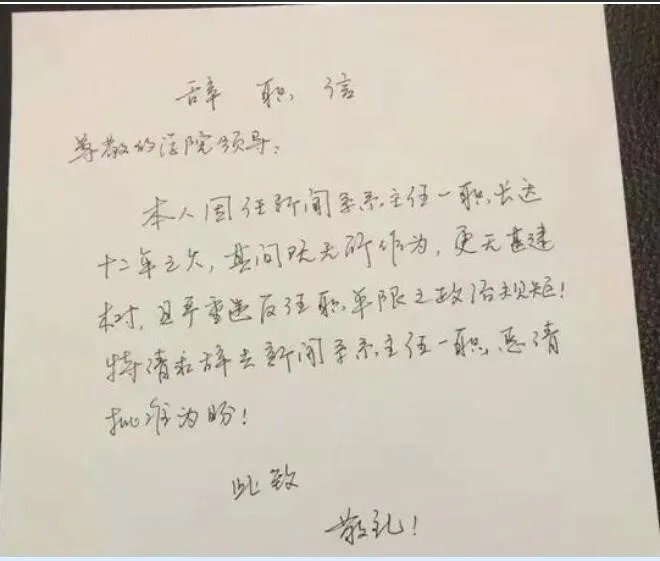 辞职信
尊敬的学院领导：
本人因任新闻系系主任一职长达
十二年之久，其间既无所作为，更无甚建
树，且严重违反任职年限之政治规矩！
特请求辞去新闻系系主任一职，恳请
批准为盼！
此致
敬礼！